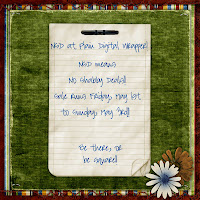 NSD at Plain Digital Wrapper!
NSD means
No Shabby Deals!!
Sale runs Friday, May 1st
to Sunday, May 3rd!
Be there, or
be square!!